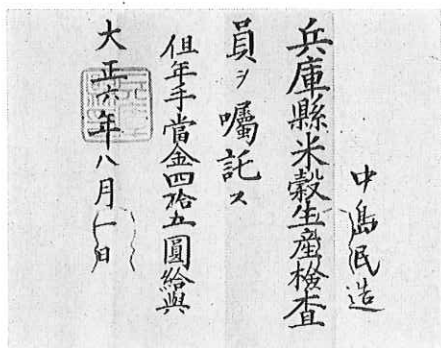 中島民造
兵庫縣米穀生産檢査
員ヲ囑託ス
但年手當金四拾五圓給與
大正六年八月一日